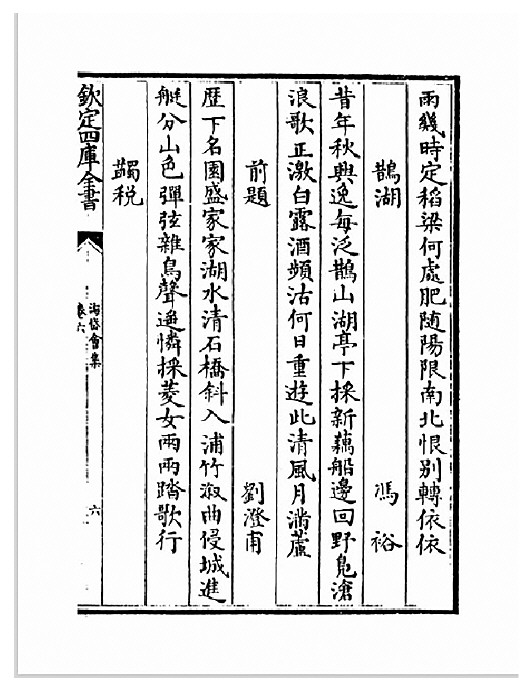 雨幾時定稻梁何處肥随陽限南北恨别轉依依
鵲湖 馮裕
昔年秋興逸每泛鵲山湖亭下採新藕船邊回野鳬滄
浪歌正激白露酒頻沽何日重遊此清風月滿蘆
前題 劉澄甫
歴下名園盛家家湖水清石橋斜入浦竹溆曲侵城進
艇分山色彈弦雜鳥聲遥憐採菱女兩兩踏歌行
蠲税
欽定四庫全書
海岱會集
卷六
六